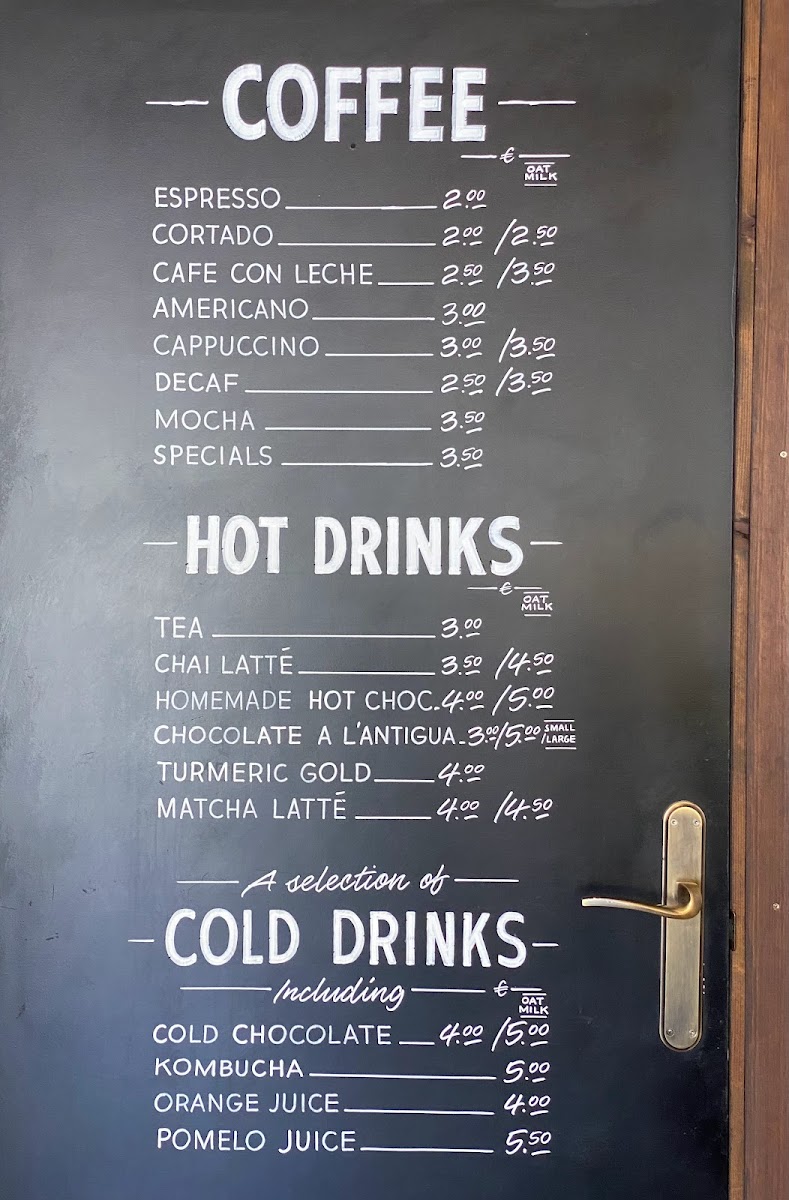 COFFEE
€ OAT MILK
ESPRESSO 2.00
CORTADO 2.00 /2.50
CAFE CON LECHE 2.50 /3.50
AMERICANO 3.00
CAPPUCCINO 3.00 /3.50
DECAF 2.50 /3.50
MOCHA 3.50
SPECIALS 3.50
HOT DRINKS
€ OAT MILK
TEA 3.00
CHAI LATTÉ 3.50 /4.50
HOMEMADE HOT CHOC. 4.00 /5.00
CHOCOLATE A L'ANTIGUA 3.00/5.00 SMALL /LARGE
TURMERIC GOLD 4.00
MATCHA LATTÉ 4.00 /4.50
A selection of
COLD DRINKS
Including €
OAT MILK
COLD CHOCOLATE 4.00 /5.00
KOMBUCHA 5.00
ORANGE JUICE 4.00
POMELO JUICE 5.50